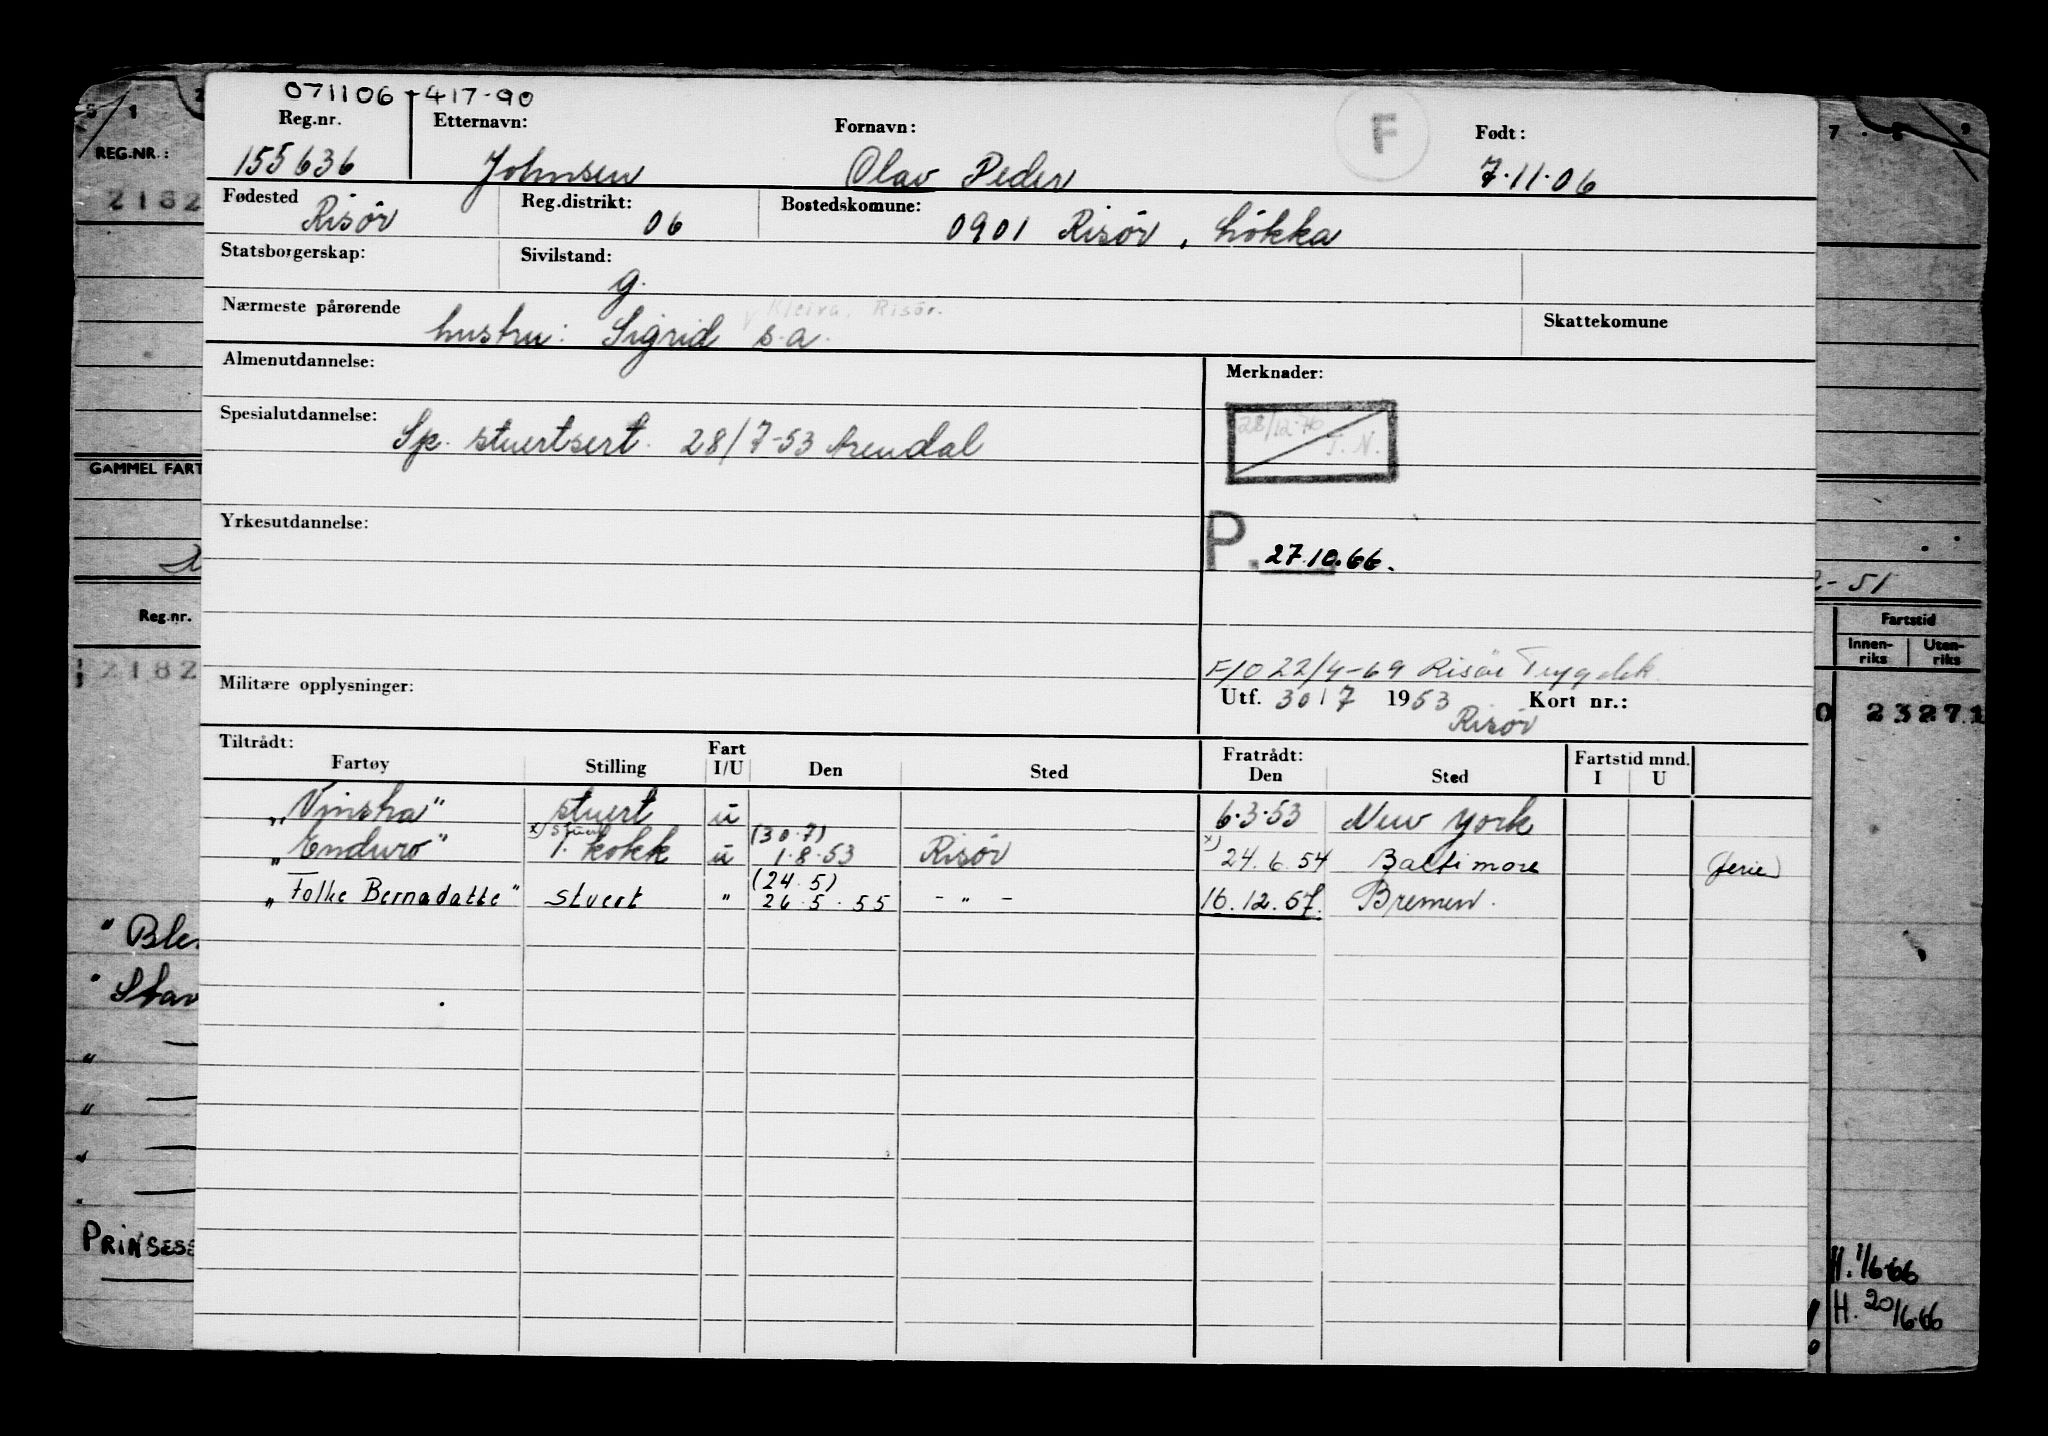 071106-417-90
Reg.nr. Etternavn: Fornavn: F Født:
REG.NR.: 155636 Johnsen Olav Peder 7.11.06
2182 Fødested Risör Reg.distrikt: 06 Bostedskomune: 0901 Risör, Lökka
Statsborgerskap: Sivilstand: g.
Nærmeste pårørende hustru: Sigrid s.a. Kleiva, Risör. Skattekomune
Almenutdannelse: Merknader:
Spesialutdannelse: Sp. stuertsert. 28/7-53 Arendal
T.N.
GAMMEL FART
Yrkesutdannelse:
P. 27.10.66.
-51
Reg.nr. Fartstid
Innen-riks Uten-riks
2182
F/O 22/4-69 Risör Trygdek.
Militære opplysninger: Utf. 30/7 1953 Kort nr.:
Risör
0 23271
Tiltrådt: Fratrådt: Fartstid mnd.
Fartøy Stilling Fart I/U Den Sted Den Sted I U
„Vinsha" stuert u 6.3.53 New York
x) stuert (30.7) x)
„Enduro" 1. kokk u 1.8.53 Risör 24.6.54 Baltimore (ferie)
(24.5)
„Folke Bernadatte" stuert " 26.5.55 - " - 16.12.57. Bremen.
" Ble
" Stav
"
"
"
"
PRINSESS
H. 1/6-66
H. 20/6-66